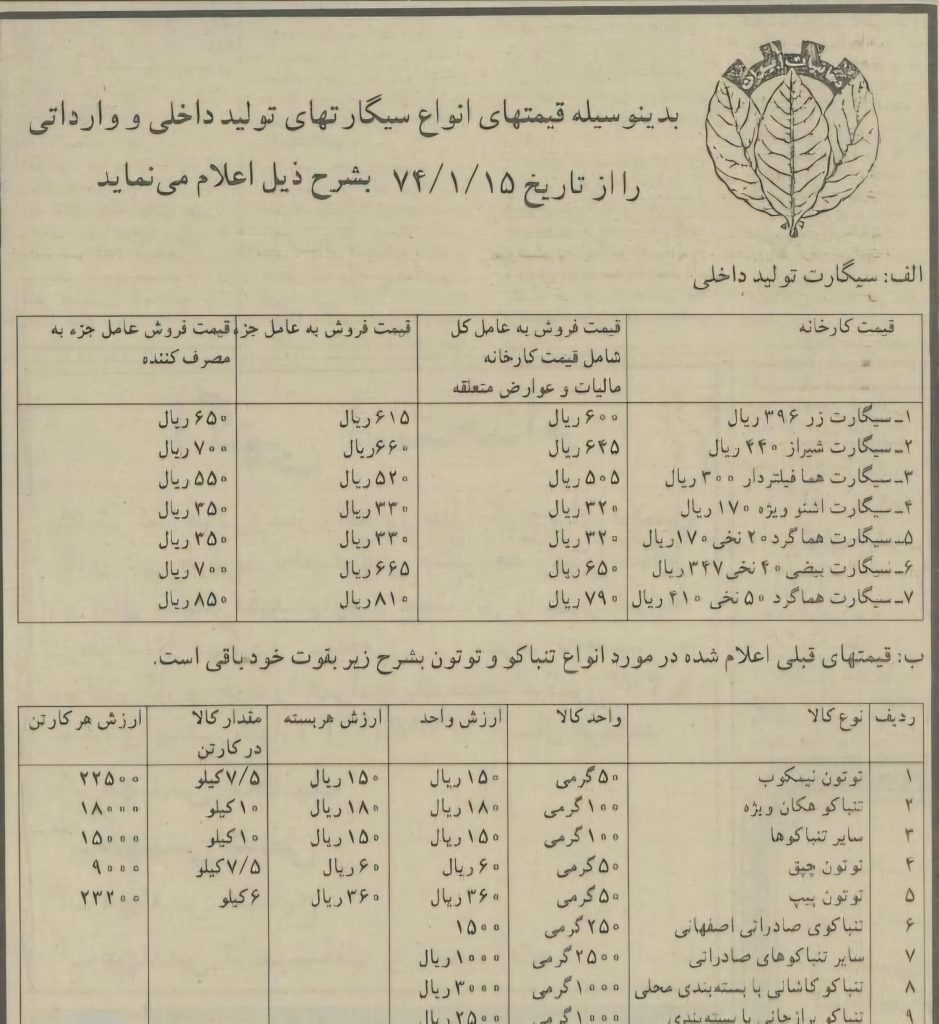 دخانیات ایران
بدینوسیله قیمتهای انواع سیگارتهای تولید داخلی و وارداتی
را از تاریخ ۷۴/۱/۱۵ بشرح ذیل اعلام می‌نماید
الف: سیگارت تولید داخلی
قیمت کارخانه | قیمت فروش به عامل کل شامل قیمت کارخانه مالیات و عوارض متعلقه | قیمت فروش به عامل جزء | قیمت فروش عامل جزء به مصرف کننده
۱ـ سیگارت زر ۳۹۶ ریال | ۶۰۰ ریال | ۶۱۵ ریال | ۶۵۰ ریال
۲ـ سیگارت شیراز ۴۴۰ ریال | ۶۴۵ ریال | ۶۶۰ ریال | ۷۰۰ ریال
۳ـ سیگارت هما فیلتردار ۳۰۰ ریال | ۵۰۵ ریال | ۵۲۰ ریال | ۵۵۰ ریال
۴ـ سیگارت اشنو ویژه ۱۷۰ ریال | ۳۲۰ ریال | ۳۳۰ ریال | ۳۵۰ ریال
۵ـ سیگارت هما گرد ۲۰ نخی ۱۷۰ ریال | ۳۲۰ ریال | ۳۳۰ ریال | ۳۵۰ ریال
۶ـ سیگارت بیضی ۴۰ نخی ۳۴۷ ریال | ۶۵۰ ریال | ۶۶۵ ریال | ۷۰۰ ریال
۷ـ سیگارت هما گرد ۵۰ نخی ۴۱۰ ریال | ۷۹۰ ریال | ۸۱۰ ریال | ۸۵۰ ریال
ب: قیمتهای قبلی اعلام شده در مورد انواع تنباکو و توتون بشرح زیر بقوت خود باقی است.
ردیف | نوع کالا | واحد کالا | ارزش واحد | ارزش هربسته | مقدار کالا در کارتن | ارزش هر کارتن
۱ | توتون نیمکوب | ۵۰ گرمی | ۱۵۰ ریال | ۱۵۰ ریال | ۷/۵ کیلو | ۲۲۵۰۰
۲ | تنباکو هکان ویژه | ۱۰۰ گرمی | ۱۸۰ ریال | ۱۸۰ ریال | ۱۰ کیلو | ۱۸۰۰۰
۳ | سایر تنباکوها | ۱۰۰ گرمی | ۱۵۰ ریال | ۱۵۰ ریال | ۱۰ کیلو | ۱۵۰۰۰
۴ | توتون چپق | ۵۰ گرمی | ۶۰ ریال | ۶۰ ریال | ۷/۵ کیلو | ۹۰۰۰
۵ | توتون پیپ | ۵۰ گرمی | ۳۶۰ ریال | ۳۶۰ ریال | ۶ کیلو | ۲۳۲۰۰
۶ | تنباکوی صادراتی اصفهانی | ۲۵۰ گرمی | ۱۵۰۰
۷ | سایر تنباکوهای صادراتی | ۲۵۰۰ گرمی | ۱۰۰۰ ریال
۸ | تنباکو کاشانی با بسته‌بندی محلی | ۱۰۰۰ گرمی | ۳۰۰۰ ریال
۹ | تنباکو برازجانی با بسته‌بندی | ۱۰۰۰ گرمی | ۲۵۰۰ ریال